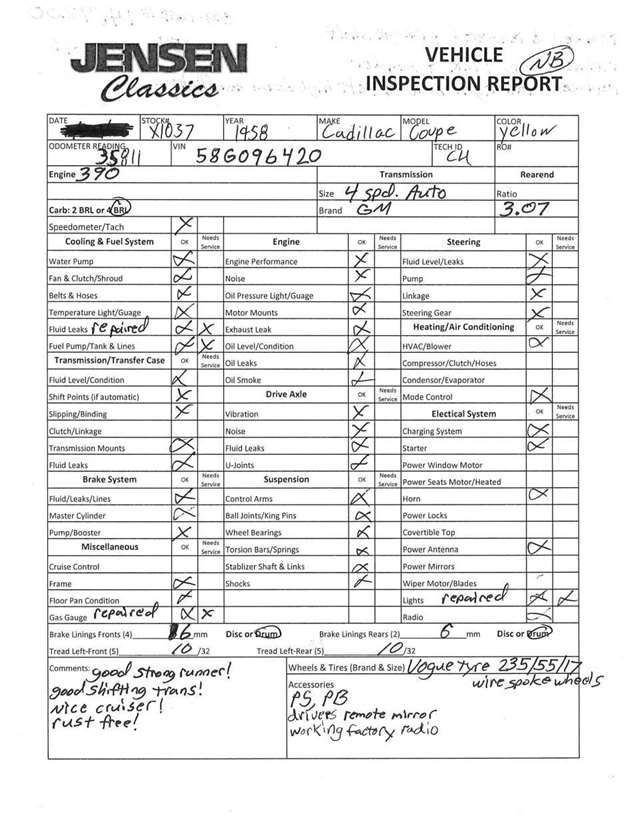 JENSEN
Classics
VEHICLE
INSPECTION REPORT
NB
DATE STOCK# X1037 YEAR 1958 MAKE Cadillac MODEL Coupe COLOR yellow
ODOMETER READING 35811 VIN 58G096420 TECH ID CH RO#
Engine 390 Transmission Rearend
Size 4 spd. Auto Ratio
Carb: 2 BRL or 4 BRL Brand GM 3.07
Speedometer/Tach X
Cooling & Fuel System OK Needs Service Engine OK Needs Service Steering OK Needs Service
Water Pump X Engine Performance X Fluid Level/Leaks X
Fan & Clutch/Shroud X Noise X Pump X
Belts & Hoses X Oil Pressure Light/Guage X Linkage X
Temperature Light/Guage X Motor Mounts X Steering Gear X
Fluid Leaks repaired X X Exhaust Leak X Heating/Air Conditioning OK Needs Service
Fuel Pump/Tank & Lines X X Oil Level/Condition X HVAC/Blower X
Transmission/Transfer Case OK Needs Service Oil Leaks X Compressor/Clutch/Hoses
Fluid Level/Condition X Oil Smoke X Condensor/Evaporator
Shift Points (if automatic) X Drive Axle OK Needs Service Mode Control X
Slipping/Binding X Vibration X Electical System OK Needs Service
Clutch/Linkage Noise X Charging System X
Transmission Mounts X Fluid Leaks X Starter X
Fluid Leaks X U-Joints X Power Window Motor
Brake System OK Needs Service Suspension OK Needs Service Power Seats Motor/Heated
Fluid/Leaks/Lines X Control Arms X Horn X
Master Cylinder X Ball Joints/King Pins X Power Locks
Pump/Booster X Wheel Bearings X Covertible Top
Miscellaneous OK Needs Service Torsion Bars/Springs X Power Antenna X
Cruise Control Stablizer Shaft & Links X Power Mirrors
Frame X Shocks X Wiper Motor/Blades
Floor Pan Condition X Lights repaired X X
Gas Gauge repaired X X Radio
Brake Linings Fronts (4) 6 mm Disc or Drum Brake Linings Rears (2) 6 mm Disc or Drum
Tread Left-Front (5) 10 /32 Tread Left-Rear (5) 10 /32
Comments: good strong runner! Wheels & Tires (Brand & Size) Vogue tyre 235/55/17
good shifting trans! Accessories wire spoke wheels
nice cruiser! PS, PB
rust free! drivers remote mirror
working factory radio